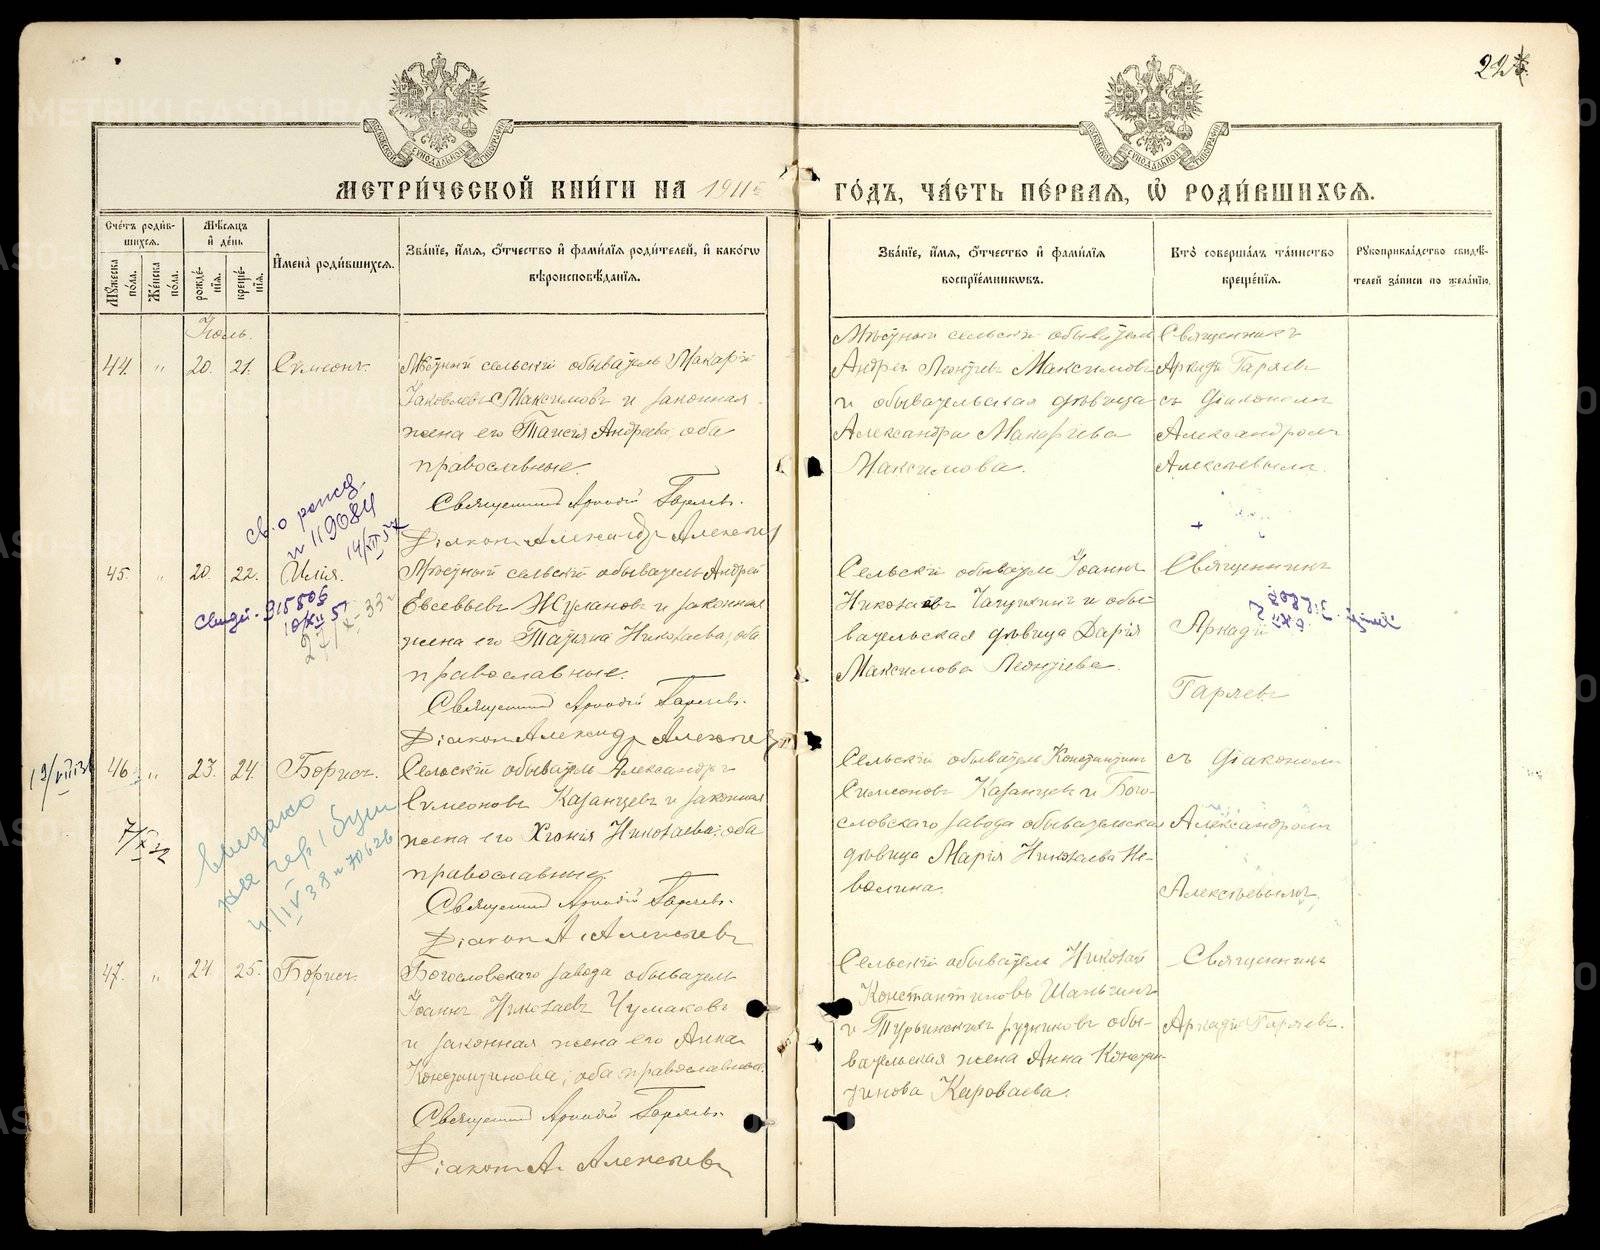 224
МЕТРИ́ЧЕСКОЙ КНИ́ГИ НА 1911 г. ГО́ДЪ, ЧА́СТЬ ПЕ́РВАЯ, Ѽ РОДИ́ВШИХСЯ.
Сче́тъ роди́вшихся.
Му́жеска по́ла.
Же́нска по́ла.
Мѣ́сяцъ и҆ де́нь
рожде́нїѧ.
креще́нїѧ.
И҆мена̀ роди́вшихся.
Зва́нїе, и҆́мѧ, ѻ҆́тчество и҆ фами́лїѧ роди́телей, и҆ како́гѡ вѣроисповѣ́данїѧ.
Зва́нїе, и҆́мѧ, ѻ҆́тчество и҆ фами́лїѧ воспрїе́мникѡвъ.
Кто̀ соверша́лъ та́инство креще́нїѧ.
Рꙋкоприкла́дство свидѣ́телей за́писи по жела́нїю.
Іюль.
44. „ 20. 21. Сѵмеонъ.
Мѣстный сельскій обыватель Макарій
Іаковлевъ Максимовъ и законная
жена его Таисія Андреева, оба
православные.
Священникъ Аркадій Гаряевъ.
Діаконъ Александръ Алексѣевъ
Мѣстный сельскій обыватель
Андрей Леонтіевъ Максимовъ
и обывательская дѣвица
Александра Макаріева
Максимова.
Священникъ
Аркадій Гаряевъ
съ діакономъ
Александромъ
Алексѣевымъ.
св. о рожд.
n 119084
14/XII 57
45. „ 20. 22. Илія.
Свидет. 315808
27/X-33
Мѣстный сельскій обыватель Андрей
Евсевьевъ Жулановъ и законная
жена его Татіана Николаева, оба
православные.
Священникъ Аркадій Гаряевъ.
Діаконъ Александръ Алексѣевъ
Сельскій обыватель Іоаннъ
Николаевъ и обы-
вательская дѣвица Дарія
Максимова Леонтіева.
Священникъ
Аркадій
Гаряевъ
46. „ 23. 24. Борисъ.
Сельскій обыватель Александръ
Сѵмеоновъ Казанцевъ и законная
жена его Хіонія Николаева, оба
православные.
Священникъ Аркадій Гаряевъ.
Діаконъ А. Алексѣевъ
Сельскій обыватель Константинъ
Симеоновъ Казанцевъ и Бого-
словскаго завода обывательская
дѣвица Марія Николаева Не-
волина.
съ діакономъ
Александромъ
Алексѣевымъ.
4/IV 38 n 70626
47. „ 24. 25. Борисъ.
Богословскаго завода обыватель
Іоаннъ Николаевъ Чумаковъ
и законная жена его Анна
Константинова, оба православные.
Священникъ Аркадій Гаряевъ.
Діаконъ А. Алексѣевъ
Сельскій обыватель Николай
Константиновъ Шаньгинъ
и Турьинскихъ рудниковъ обы-
вательская жена Анна Констан-
тинова Короваева.
Священникъ
Аркадій Гаряевъ.